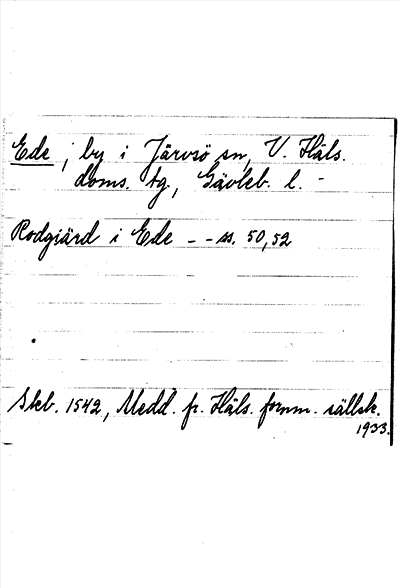 Ede, by i Järvsö sn, V. Häls.
doms. tg, Gävleb. l. -
Rodgiärd i Ede - - ss. 50, 52
Skb. 1542, Medd. fr. Häls. fornm. sällsk.
1933.